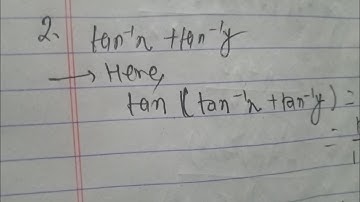 2. tan⁻¹x + tan⁻¹y
→ Here,
tan (tan⁻¹x + tan⁻¹y) =
=